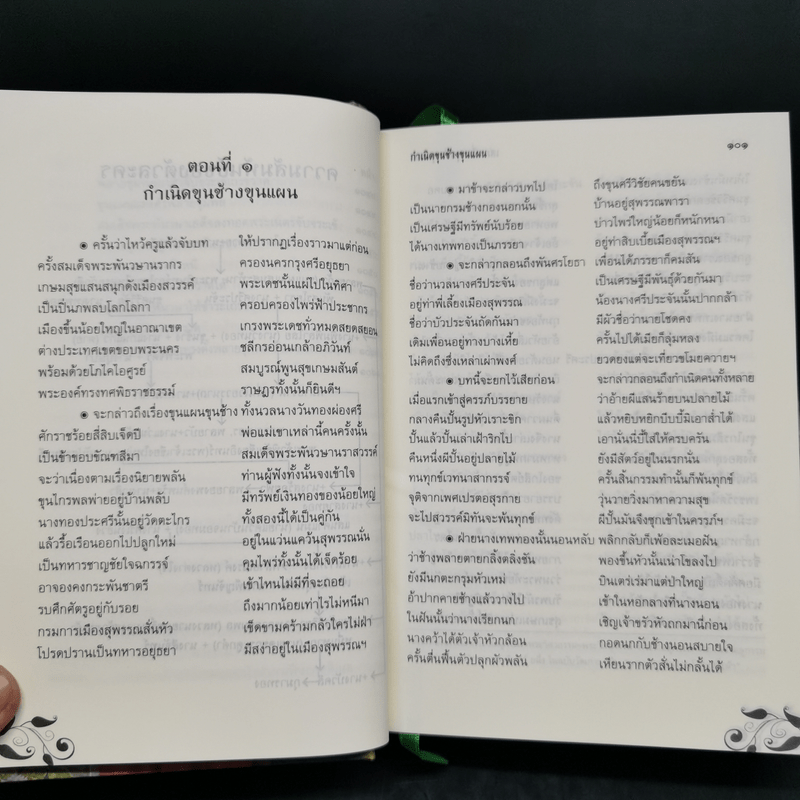 ตอนที่ ๑
กำเนิดขุนช้างขุนแผน
◉ ครั้นว่าไหว้ครูแล้วจับบท ให้ปรากฏเรื่องราวมาแต่ก่อน
ครั้งสมเด็จพระพันวษานรากร ครองนครกรุงศรีอยุธยา
เกษมสุขแสนสนุกดังเมืองสวรรค์ พระเดชนั้นแผ่ไปในทิศา
เป็นปิ่นภพลบโลกโลกา ครอบครองไพร่ฟ้าประชากร
เมืองขึ้นน้อยใหญ่ในอาณาเขต เกรงพระเดชทั่วหมดสยดสยอน
ต่างประเทศเขตขอบพระนคร ชลีกรอ่อนเกล้าอภิวันท์
พร้อมด้วยโภไคไอศูรย์ สมบูรณ์พูนสุขเกษมสันต์
พระองค์ทรงทศพิธราชธรรม์ ราษฎรทั้งนั้นก็ยินดีฯ
◉ จะกล่าวถึงเรื่องขุนแผนขุนช้าง ทั้งนวลนางวันทองผ่องศรี
ศักราชร้อยสี่สิบเจ็ดปี พ่อแม่เขาเหล่านี้คนครั้งนั้น
เป็นข้าขอบขัณฑสีมา สมเด็จพระพันวษานราสวรรค์
จะว่าเนื่องตามเรื่องนิยายพลัน ท่านผู้ฟังทั้งนั้นจงเข้าใจ
ขุนไกรพลพ่ายอยู่บ้านพลับ มีทรัพย์เงินทองของน้อยใหญ่
นางทองประศรีนั้นอยู่วัดตะไกร ทั้งสองนี้ได้เป็นคู่กัน
แล้วรื้อเรือนออกไปปลูกใหม่ อยู่ในแว่นแคว้นสุพรรณนั่น
เป็นทหารชาญชัยใจฉกรรจ์ คุมไพร่ทั้งนั้นได้เจ็ดร้อย
อาจองคงกระพันชาตรี เข้าไหนไม่มีที่จะถอย
รบศึกศัตรูอยู่กับรอย ถึงมากน้อยเท่าไรไม่หนีมา
กรมการเมืองสุพรรณสั่นหัว เข็ดขามคร้ามกลัวใครไม่ฝ่า
โปรดปรานเป็นทหารอยุธยา มีสง่าอยู่ในเมืองสุพรรณฯ
กำเนิดขุนช้างขุนแผน ๑๐๑
◉ มาข้าจะกล่าวบทไป ถึงขุนศรีวิชัยคนขยัน
เป็นนายกรมช้างกองนอกนั้น บ้านอยู่สุพรรณพารา
เป็นเศรษฐีมีทรัพย์นับร้อย บ่าวไพร่ใหญ่น้อยก็นักหนา
ได้นางเทพทองเป็นภรรยา อยู่ท่าสิบเบี้ยเมืองสุพรรณฯ
◉ จะกล่าวกลอนถึงพันศรโยธา เพื่อนได้ภรรยาก็คมสัน
ชื่อว่านวลนางศรีประจัน เป็นเศรษฐีมีพันธุ์ด้วยกันมา
อยู่ท่าพี่เลี้ยงเมืองสุพรรณ น้องนางศรีประจันนั้นปากกล้า
ชื่อว่าบัวประจันถัดกันมา มีผัวชื่อว่านายโชดคง
เดิมเพื่อนอยู่ทางบางเหี้ย ครั้นไปได้เมียก็ลุ่มหลง
ไม่คิดถึงซึ่งเหล่าเผ่าพงศ์ ยวดยงแต่จะเที่ยวขโมยควายฯ
◉ บทนี้จะยกไว้เสียก่อน จะกล่าวกลอนถึงกำเนิดคนทั้งหลาย
เมื่อแรกเข้าสู่ครรภ์บรรยาย ว่าอ้ายผีแสนร้ายบนปลายไม้
กลางคืนปั้นรูปหัวเราะซิก แล้วหยิบหยิกบีบบี้มิเอาส่ำได้
ปั้นแล้วปั้นเล่าเฝ้าริกไป เอานั่นนี่ปี้ใส่ให้ครบครัน
คืนหนึ่งผีปั้นอยู่ปลายไม้ ยังมีสัตว์อยู่ในนรกนั่น
ทนทุกข์เวทนาสากรรจ์ ครั้นสิ้นกรรมเท่านั้นก็พ้นทุกข์
จุติจากเพศเปรตอสุรกาย วุ่นวายวิ่งมาหาความสุข
จะไปสวรรค์มิทันจะพ้นทุกข์ ผีปั้นมันจึงซุกเข้าในครรภ์ฯ
◉ ฝ่ายนางเทพทองนั้นนอนหลับ พลิกกลับก็เพ้อละเมอฝัน
ว่าช้างพลายตายกลิ้งตลิ่งชัน พองขึ้นหัวนั้นเน่าโขลงไป
ยังมีนกตะกรุมหัวเหม่ บินเตร่เร่มาแต่ป่าใหญ่
อ้าปากคาบช้างแล้ววางไป เข้าในหอกลางที่นางนอน
ในฝันนั้นว่านางเรียกนก เชิญเจ้าขรัวหัวถกมานี่ก่อน
นางคว้าได้ตัวเจ้าหัวกล้อน กอดนกกับช้างนอนสบายใจ
ครั้นตื่นฟื้นตัวปลุกผัวพลัน เหียนรากตัวสั่นไม่กลั้นได้